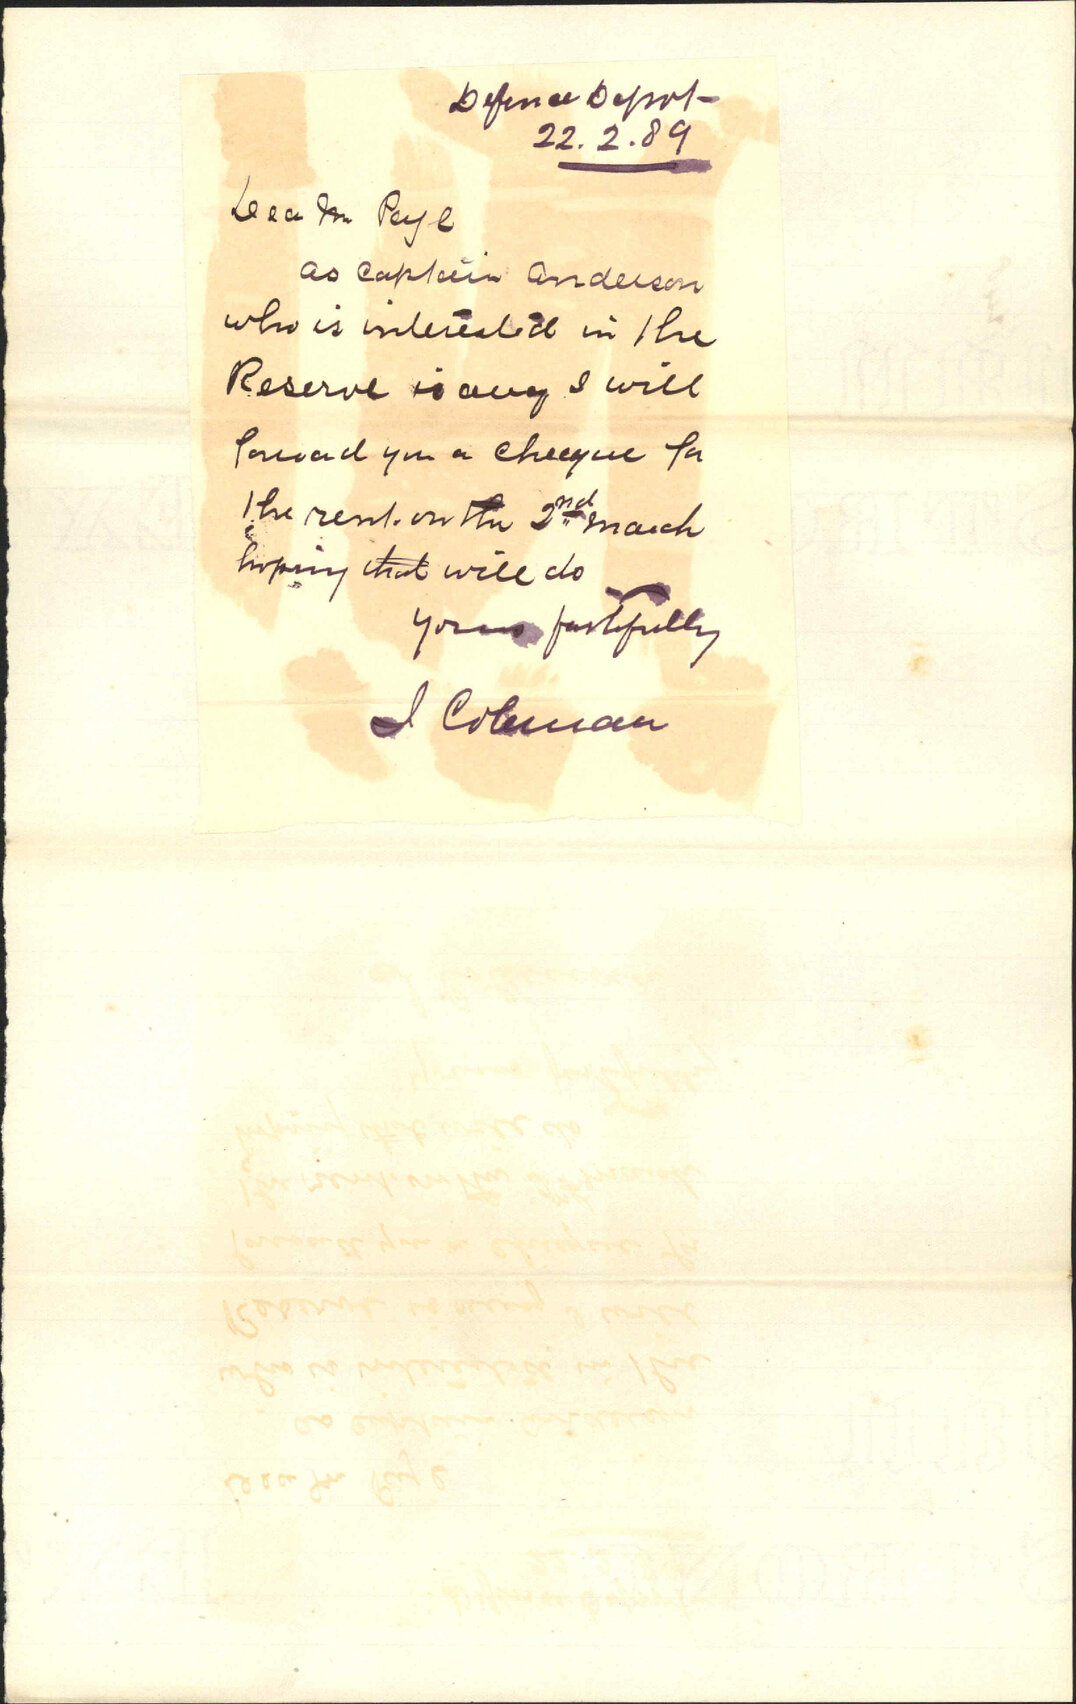 Defence Depot
22.2.89
Dear Mr
as Captain Anderson
who is interested in the
Reserve is away I will
forward you a cheque for
the rent on the 2nd March
hoping that will do
Yours faithfully
J Coleman